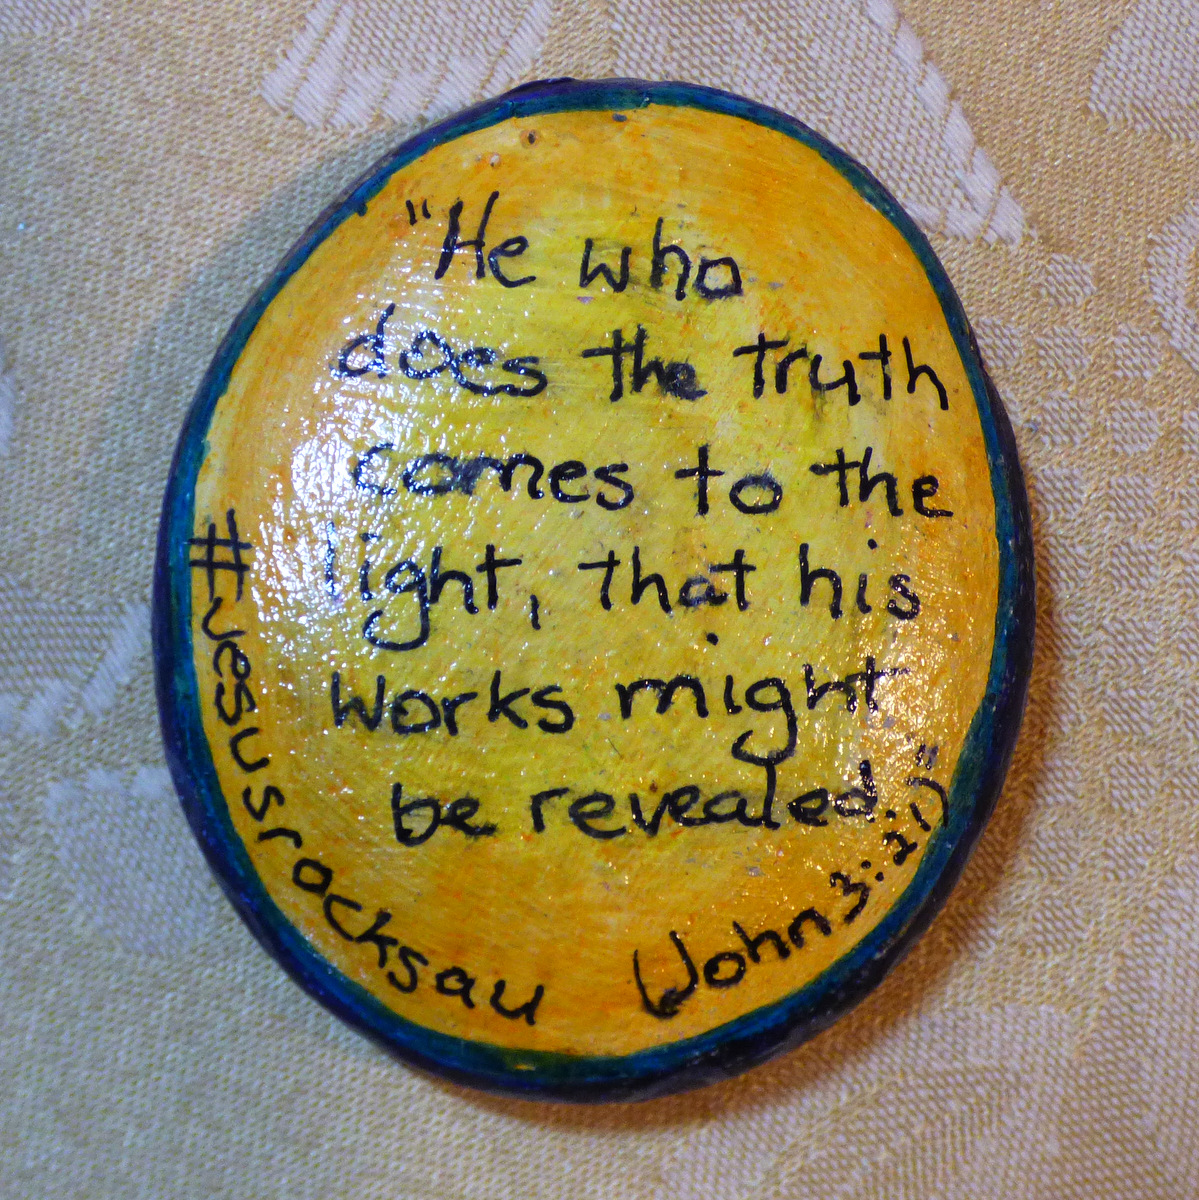 "He who
does the truth
comes to the
light, that his
works might
be revealed."
(John 3:21)
#Jesusrocksau